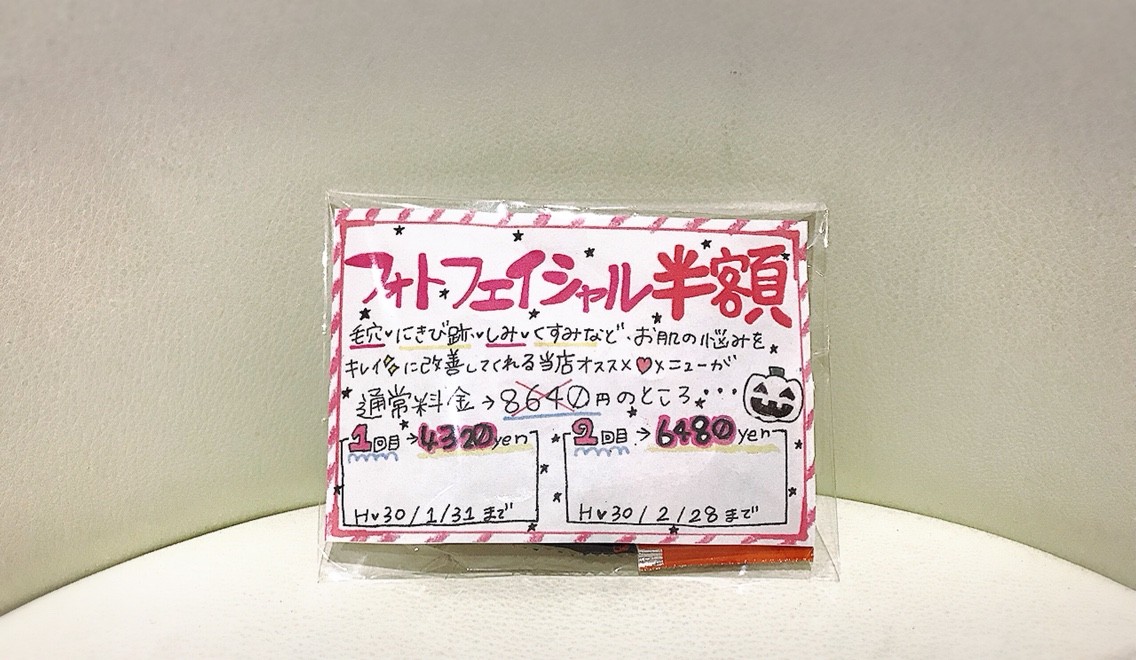 フォトフェイシャル半額
毛穴♥にきび跡♥しみ♥くすみなど、お肌の悩みを
キレイに改善してくれる当店オススメ♥メニューが
通常料金→8640円のところ・・・
1回目→4320yen
H♥30/1/31まで
2回目→6480yen
H♥30/2/28まで